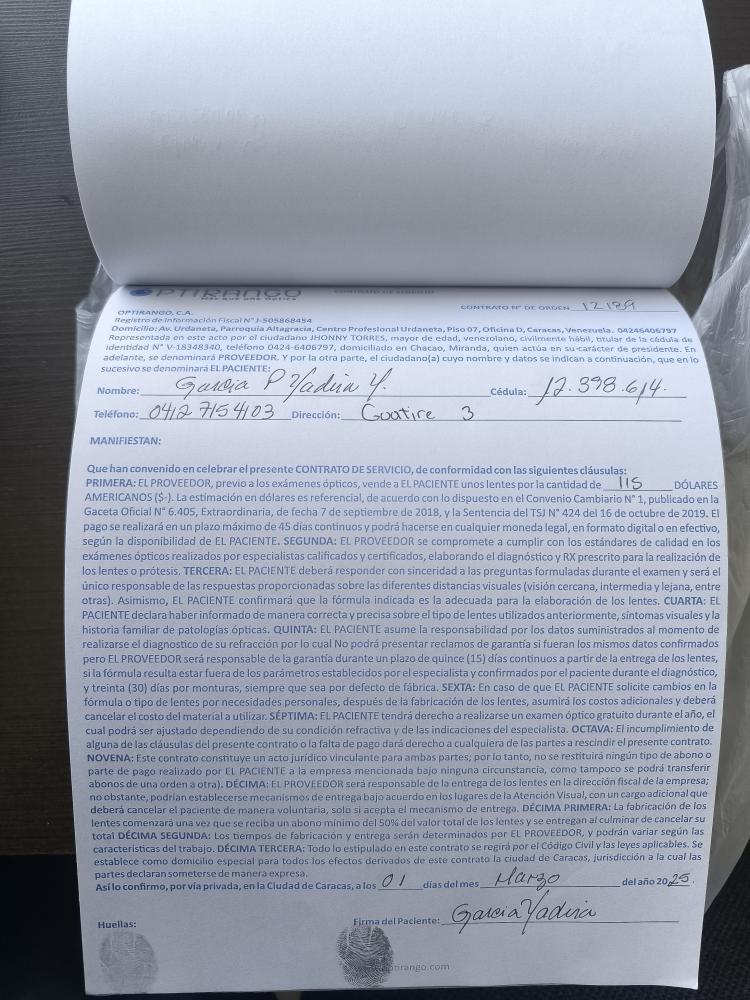 OPTIRANGO
Más que una óptica
CONTRATO DE SERVICIO
CONTRATO N° DE ORDEN 12189
OPTIRANGO, C.A.
Registro de Información Fiscal N° J-505868454
Domicilio: Av. Urdaneta, Parroquia Altagracia, Centro Profesional Urdaneta, Piso 07, Oficina D, Caracas, Venezuela. 04246406797
Representada en este acto por el ciudadano JHONNY TORRES, mayor de edad, venezolano, civilmente hábil, titular de la cédula de
identidad N° V-18348340, teléfono 0424-6406797, domiciliado en Chacao, Miranda, quien actúa en su carácter de presidente. En
adelante, se denominará PROVEEDOR. Y por la otra parte, el ciudadano(a) cuyo nombre y datos se indican a continuación, que en lo
sucesivo se denominará EL PACIENTE:
Nombre: Garcia P Yadira Y. Cédula: 12.398.614.
Teléfono: 0412 7154103 Dirección: Guatire 3
MANIFIESTAN:
Que han convenido en celebrar el presente CONTRATO DE SERVICIO, de conformidad con las siguientes cláusulas:
PRIMERA: EL PROVEEDOR, previo a los exámenes ópticos, vende a EL PACIENTE unos lentes por la cantidad de 115 DÓLARES
AMERICANOS ($-). La estimación en dólares es referencial, de acuerdo con lo dispuesto en el Convenio Cambiario N° 1, publicado en la
Gaceta Oficial N° 6.405, Extraordinaria, de fecha 7 de septiembre de 2018, y la Sentencia del TSJ N° 424 del 16 de octubre de 2019. El
pago se realizará en un plazo máximo de 45 días continuos y podrá hacerse en cualquier moneda legal, en formato digital o en efectivo,
según la disponibilidad de EL PACIENTE. SEGUNDA: EL PROVEEDOR se compromete a cumplir con los estándares de calidad en los
exámenes ópticos realizados por especialistas calificados y certificados, elaborando el diagnóstico y RX prescrito para la realización de
los lentes o prótesis. TERCERA: EL PACIENTE deberá responder con sinceridad a las preguntas formuladas durante el examen y será el
único responsable de las respuestas proporcionadas sobre las diferentes distancias visuales (visión cercana, intermedia y lejana, entre
otras). Asimismo, EL PACIENTE confirmará que la fórmula indicada es la adecuada para la elaboración de los lentes. CUARTA: EL
PACIENTE declara haber informado de manera correcta y precisa sobre el tipo de lentes utilizados anteriormente, síntomas visuales y la
historia familiar de patologías ópticas. QUINTA: EL PACIENTE asume la responsabilidad por los datos suministrados al momento de
realizarse el diagnostico de su refracción por lo cual No podrá presentar reclamos de garantía si fueran los mismos datos confirmados
pero EL PROVEEDOR será responsable de la garantía durante un plazo de quince (15) días continuos a partir de la entrega de los lentes,
si la fórmula resulta estar fuera de los parámetros establecidos por el especialista y confirmados por el paciente durante el diagnóstico,
y treinta (30) días por monturas, siempre que sea por defecto de fábrica. SEXTA: En caso de que EL PACIENTE solicite cambios en la
fórmula o tipo de lentes por necesidades personales, después de la fabricación de los lentes, asumirá los costos adicionales y deberá
cancelar el costo del material a utilizar. SÉPTIMA: EL PACIENTE tendrá derecho a realizarse un examen óptico gratuito durante el año, el
cual podrá ser ajustado dependiendo de su condición refractiva y de las indicaciones del especialista. OCTAVA: El incumplimiento de
alguna de las cláusulas del presente contrato o la falta de pago dará derecho a cualquiera de las partes a rescindir el presente contrato.
NOVENA: Este contrato constituye un acto jurídico vinculante para ambas partes; por lo tanto, no se restituirá ningún tipo de abono o
parte de pago realizado por EL PACIENTE a la empresa mencionada bajo ninguna circunstancia, como tampoco se podrá transferir
abonos de una orden a otra). DÉCIMA: EL PROVEEDOR será responsable de la entrega de los lentes en la dirección fiscal de la empresa;
no obstante, podrían establecerse mecanismos de entrega bajo acuerdo en los lugares de la Atención Visual, con un cargo adicional que
deberá cancelar el paciente de manera voluntaria, solo si acepta el mecanismo de entrega. DÉCIMA PRIMERA: La fabricación de los
lentes comenzará una vez que se reciba un abono mínimo del 50% del valor total de los lentes y se entregan al culminar de cancelar su
total DÉCIMA SEGUNDA: Los tiempos de fabricación y entrega serán determinados por EL PROVEEDOR, y podrán variar según las
características del trabajo. DÉCIMA TERCERA: Todo lo estipulado en este contrato se regirá por el Código Civil y las leyes aplicables. Se
establece como domicilio especial para todos los efectos derivados de este contrato la ciudad de Caracas, jurisdicción a la cual las
partes declaran someterse de manera expresa.
Así lo confirmo, por vía privada, en la Ciudad de Caracas, a los 01 días del mes Marzo del año 2025.
Huellas: Firma del Paciente: Garcia Yadira
optirango.com